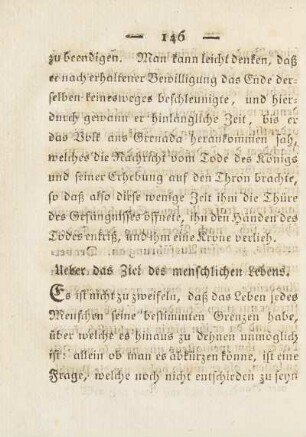 — 146 —
zu beendigen. Man kann leicht denken, daß
er nach erhaltener Bewilligung das Ende der-
selben keinesweges beschleunigte, und hier-
durch gewann er hinlängliche Zeit, bis er
das Volk aus Grenada herankommen sah,
welches die Nachricht vom Tode des Königs
und seiner Erhebung auf den Thron brachte,
so daß also diese wenige Zeit ihm die Thüre
des Gefängnisses öfnete, ihn den Händen des
Todes entriß, und ihm eine Krone verlieh.
Ueber das Ziel des menschlichen Lebens.
Es ist nicht zu zweifeln, daß das Leben jedes
Menschen seine bestimmten Grenzen habe,
über welche es hinaus zu dehnen unmöglich
ist: allein ob man es abkürzen könne, ist eine
Frage, welche noch nicht entschieden zu seyn